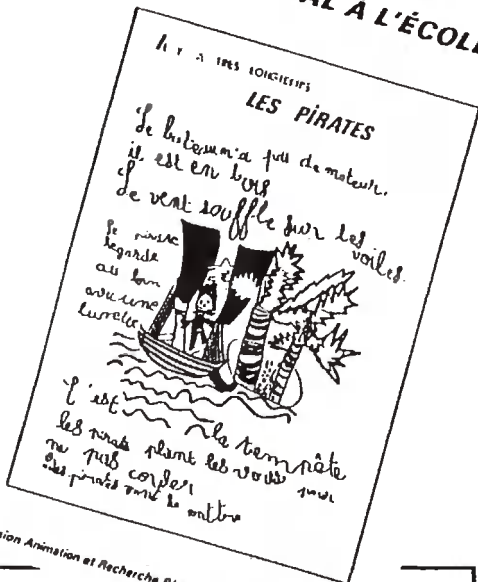 AL À L'ÉCOLE
IL Y A TRES LONGTEMPS
LES PIRATES
Le bateau n'a pas de moteur.
il est en bois
Le vent souffle sur les voiles.
Le pirate
regarde
au loin
avec une
lunette
C'est la tempête
les pirates plient les voiles pour
ne pas couler
les pirates vont se battre
sion Animation et Recherche